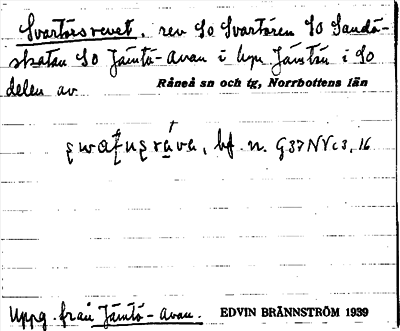 Svartörsrevet, rev SO Svartören SO Sandö-
skatan SO Jämtö-Avan i byn Jämtön i SO
delen av Råneå sn och tg, Norrbottens län
bf. n. G37NVc3,16
Uppg. från Jämtö-Avan. EDVIN BRÄNNSTRÖM 1939